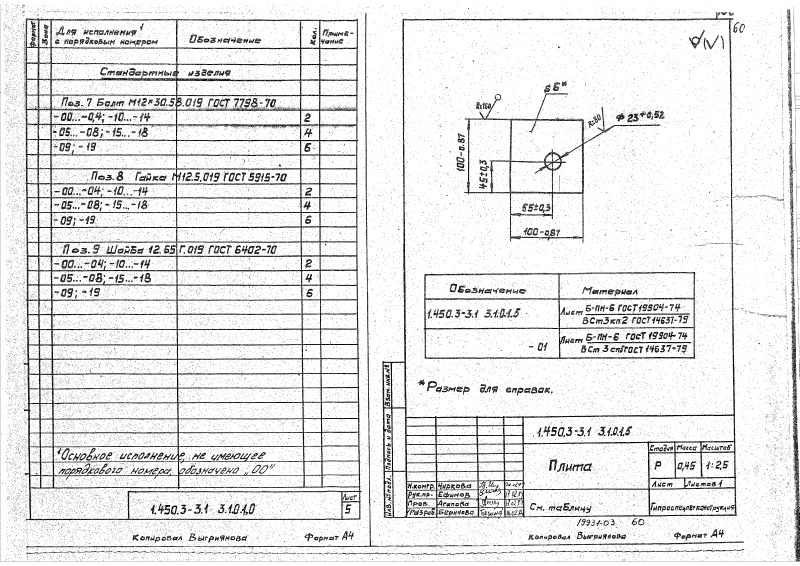 Формат
Зона
Для исполнения¹
с порядковым номером
Обозначение
Кол.
Приме-
чание
Стандартные изделия
Поз. 7 Болт М12×30.58.019 ГОСТ 7798-70
-00...-0,4; -10...-14 2
-05...-08; -15...-18 4
-09; -19 6
Поз. 8 Гайка М12.5.019 ГОСТ 5915-70
-00...-04; -10...-14 2
-05...-08; -15...-18 4
-09; -19 6
Поз. 9 Шайба 12.65 Г.019 ГОСТ 6402-70
-00...-04; -10...-14 2
-05...-08; -15...-18 4
-09; -19 6
¹Основное исполнение, не имеющее
порядкового номера, обозначено „00"
1.450.3-3.1 3.1.0.1.0
Лист
5
Копировал Выгриянова Формат А4
60
s 6*
Rz160
Rz80
⌀ 23+0,52
100-0.87
45±0,3
55±0,3
100-0.87
Обозначение Материал
1.450.3-3.1 3.1.0.1.5 Лист Б-ПН-6 ГОСТ 19904-74
ВСт3кп2 ГОСТ 14637-79
-01 Лист Б-ПН-6 ГОСТ 19904-74
ВСт 3 сп ГОСТ 14637-79
*Размер для справок.
Взам. инв. №
Подпись и дата
Инв. № подл.
1.450.3-3.1 3.1.0.1.5
Плита
Стадия Масса Масштаб
Р 0,45 1:2,5
Лист Листов 1
Н.контр. Чиркова
Рук.пр. Ефимов
Пров. Агапова
Разраб.
См. таблицу
19931-03 60
Копировал Выгриянова Формат А4